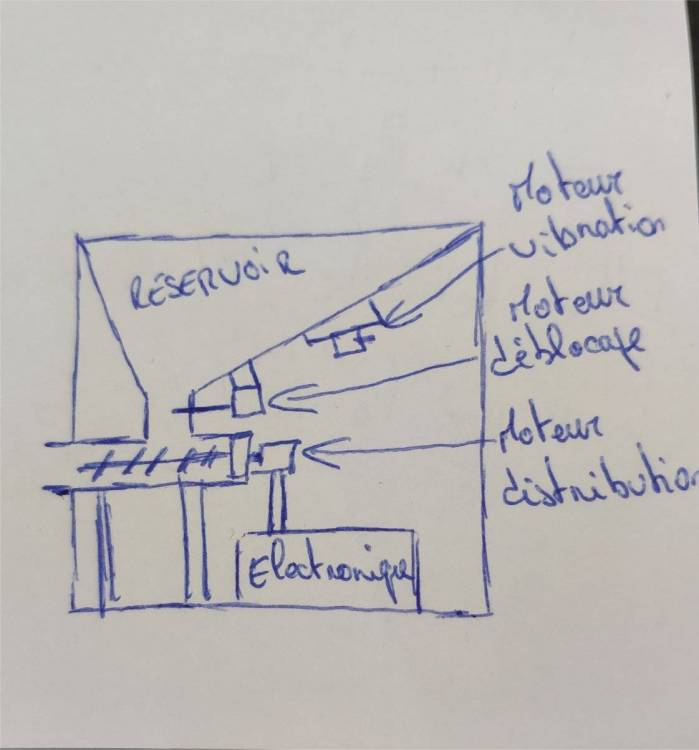 Moteur
vibration
RÉSERVOIR
Moteur
déblocage
Moteur
distribution
Electronique